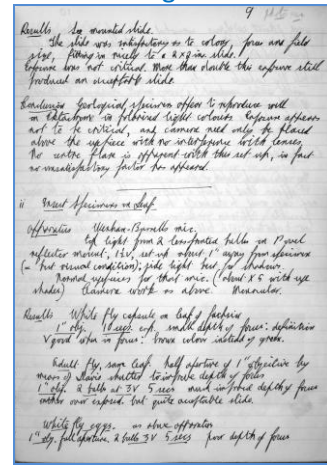 9
Results See mounted slide.
The slide was satisfactory as to colour, focus and field
size, fitting in nicely to a 2 x 2 in. slide.
Exposure was not critical. More than double this exposure still
produced an acceptable slide.
Geological specimen appears to reproduce well
in Ektachrome in polarised light colours. Exposure appears
not to be critical, and camera need only be placed
above the eyepiece with no interference with lenses.
No centre flare is apparent with this set up, in fact
no unsatisfactory factor has appeared.
ii Insect Specimens on Leaf
Apparatus Wenham-Binocular mic.
Top light from 2 bulbs in
reflector mount, 12v, set up about 1" away from specimen
(= best visual condition); side light best for shadows.
Normal eyepieces for that mic. (about x 5 with eye
shades) Camera work as above. Monocular.
Results White fly capsule on leaf of fuchsia
1" obj. 10 secs exp. small depth of focus: definition
v good what in focus: brown colour instead of green.
Adult fly, same leaf. half aperture of 1" objective by
means of shutter to improve depth of focus
1" obj. 2 bulbs at 3V 5 secs much improved depth of focus
rather over exposed but quite acceptable slide.
White fly eggs. as above apparatus
1" obj. full aperture. 2 bulbs 3V 5 secs poor depth of focus